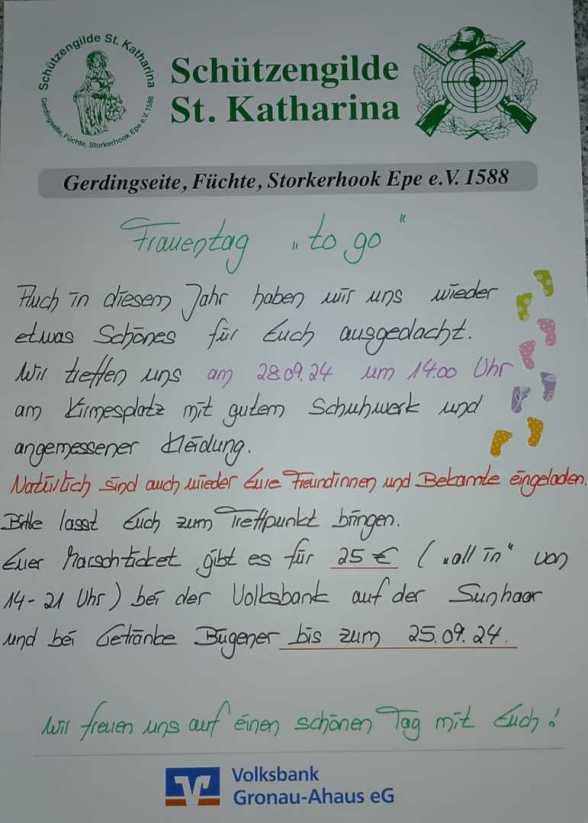 Schützengilde St. Katharina
Gerdingseite, Füchte, Storkerhook Epe e.V. 1588
Schützengilde
St. Katharina
Gerdingseite, Füchte, Storkerhook Epe e.V. 1588
Frauentag „to go“
Auch in diesem Jahr haben wir uns wieder
etwas Schönes für Euch ausgedacht.
Wir treffen uns am 28.09.24 um 14:00 Uhr
am Kirmesplatz mit gutem Schuhwerk und
angemessener Kleidung.
Natürlich sind auch wieder Eure Freundinnen und Bekannte eingeladen.
Bitte lasst Euch zum Treffpunkt bringen.
Euer Marschticket gibt es für 25 € („all in“ von
14-21 Uhr) bei der Volksbank auf der Sunhaar
und bei Getränke Bügener bis zum 25.09.24.
Wir freuen uns auf einen schönen Tag mit Euch!
Volksbank
Gronau-Ahaus eG